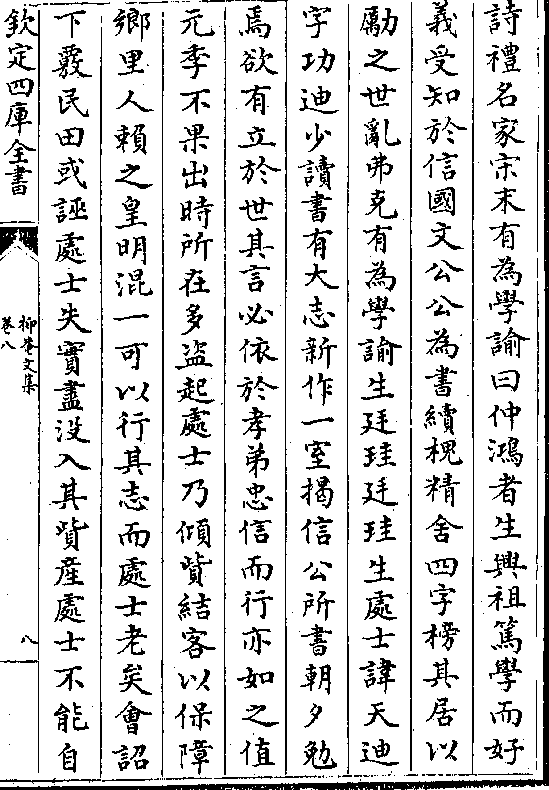 詩禮名家宋末有為學諭曰仲鴻者生興祖篤學而好
義受知於信國文公公為書續槐精舍四字榜其居以
勵之世亂弗克有為學諭生廷珪廷珪生處士諱天迪
字功迪少讀書有大志新作一室揭信公所書朝夕勉
焉欲有立於世其言必依於孝弟忠信而行亦如之值
元季不果出時所在多盗起處士乃傾貲結客以保障
鄉里人賴之皇明混一可以行其志而處士老矣會詔
下覈民田或誣處士失實盡没入其貲産處士不能自
欽定四庫全書
抑菴文集
卷八
八